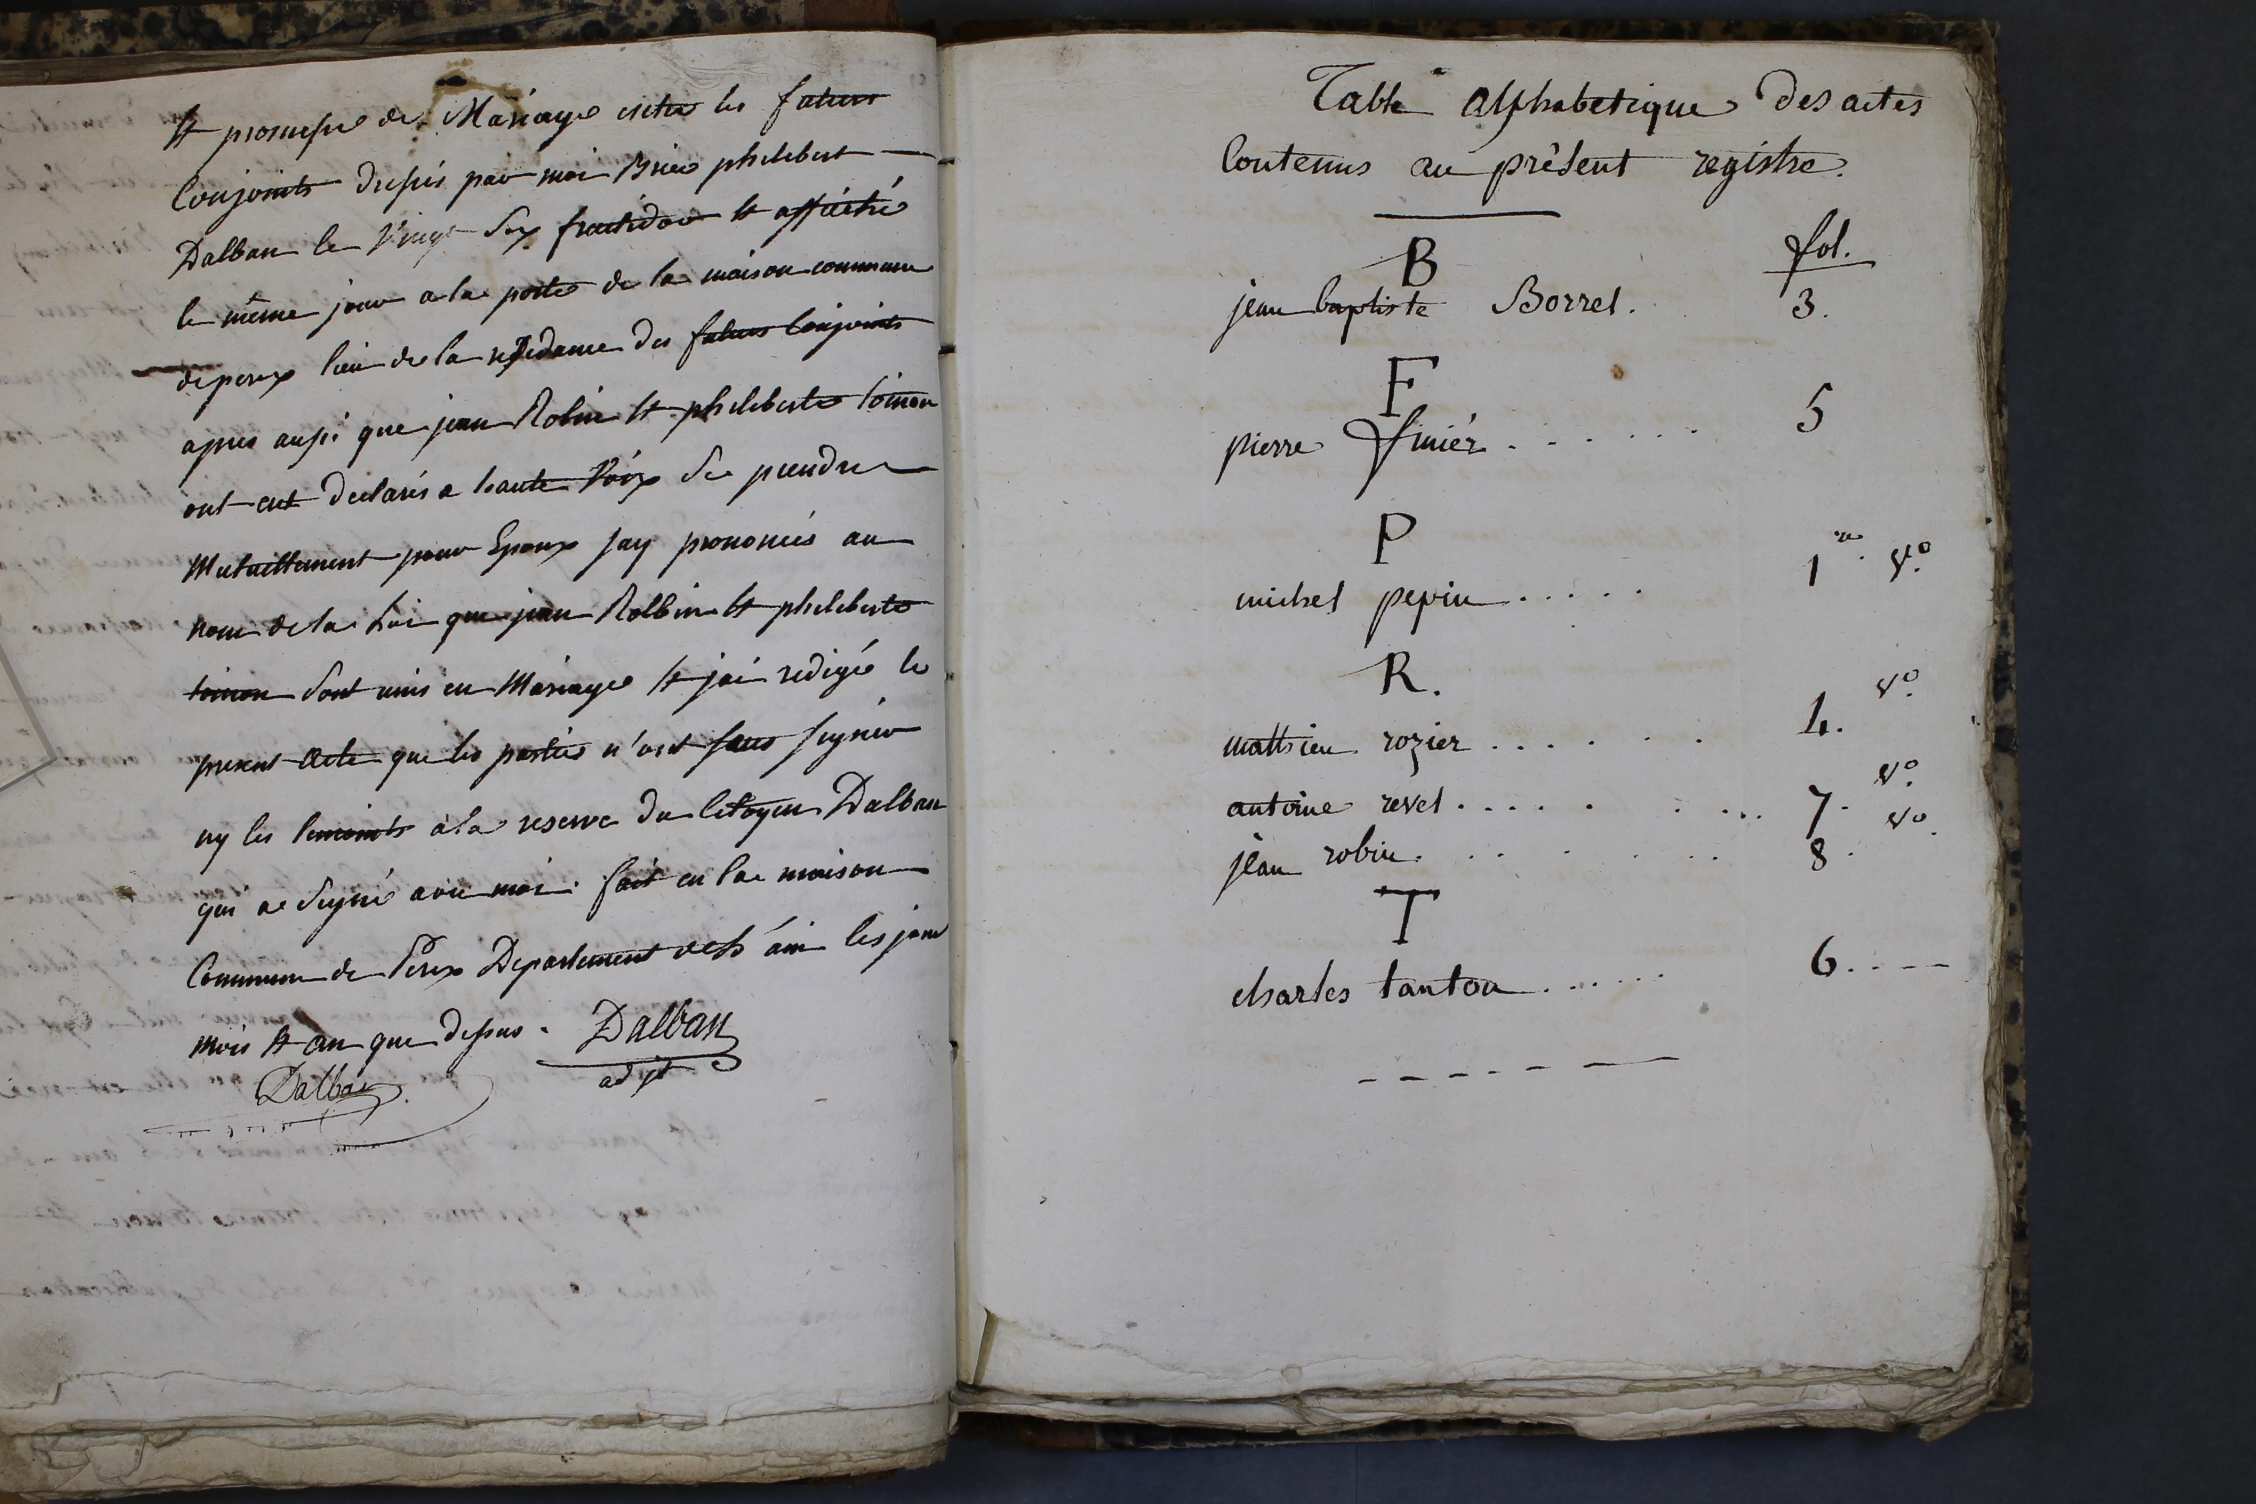 et promesse de Mariage entre les futurs
Conjoints dressés par moi Brice philebert
Dalban le Vingt six fructidor et affictré
le même jour a la porte de la maison commune
de perex lieu de la residance des futurs Conjoints
apres aussi que jean Robin et phileberte toinon
ont eut declarés a haute Voix de prendre
Mutuellement pour Epoux jay prononcés au
nom de la Loi que jean Rolbin et phileberte
toinon sont unis en Mariage et jai redigée le
present acte que les parties n'ont sceu signér
ny les temoints a la reserve du Citoyen Dalban
qui a signé avec moi. fait en la maison
Commune de Perex Departement de l'ain les jour
mois et an que dessus. Dalban
adjt
Dalban
Table alphabetique Des actes
Contenus au présent registre.
fol.
B
jean baptiste Borrel. 3.
F
pierre finiér . . . . . . . 5
P
michel pepin . . . . . 1er. vo.
R.
matthieu rozier . . . . . . 4. vo.
antoine revel . . . . . . . . . 7. vo.
jean robin. . . . . . . . 8. vo.
T
charles tanton . . . . . . 6. . . .